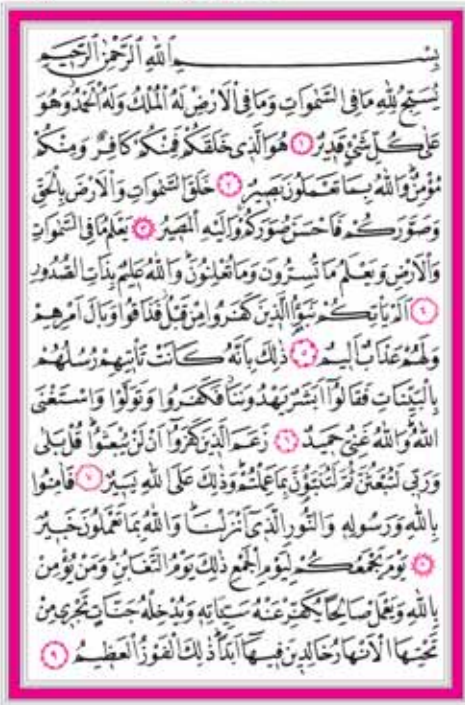 بِسْمِ اللهِ الرَّحْمٰنِ الرَّحِيمِ
يُسَبِّحُ لِلّٰهِ مَا فِى السَّمٰوَاتِ وَمَا فِى الْاَرْضِ لَهُ الْمُلْكُ وَلَهُ الْحَمْدُ وَهُوَ
عَلٰى كُلِّ شَيْءٍ قَدِيرٌ ﴿١﴾ هُوَ الَّذِى خَلَقَكُمْ فَمِنْكُمْ كَافِرٌ وَمِنْكُمْ
مُؤْمِنٌ وَاللهُ بِمَا تَعْمَلُونَ بَصِيرٌ ﴿٢﴾ خَلَقَ السَّمٰوَاتِ وَالْاَرْضَ بِالْحَقِّ
وَصَوَّرَكُمْ فَاَحْسَنَ صُوَرَكُمْ وَاِلَيْهِ الْمَصِيرُ ﴿٣﴾ يَعْلَمُ مَا فِى السَّمٰوَاتِ
وَالْاَرْضِ وَيَعْلَمُ مَا تُسِرُّونَ وَمَا تُعْلِنُونَ وَاللهُ عَلِيمٌ بِذَاتِ الصُّدُورِ
﴿٤﴾ اَلَمْ يَاْتِكُمْ نَبَؤُا الَّذِينَ كَفَرُوا مِنْ قَبْلُ فَذَاقُوا وَبَالَ اَمْرِهِمْ
وَلَهُمْ عَذَابٌ اَلِيمٌ ﴿٥﴾ ذٰلِكَ بِاَنَّهُ كَانَتْ تَاْتِيهِمْ رُسُلُهُمْ
بِالْبَيِّنَاتِ فَقَالُوا اَبَشَرٌ يَهْدُونَنَا فَكَفَرُوا وَتَوَلَّوْا وَاسْتَغْنَى
اللهُ وَاللهُ غَنِىٌّ حَمِيدٌ ﴿٦﴾ زَعَمَ الَّذِينَ كَفَرُوا اَنْ لَنْ يُبْعَثُوا قُلْ بَلٰى
وَرَبِّى لَتُبْعَثُنَّ ثُمَّ لَتُنَبَّؤُنَّ بِمَا عَمِلْتُمْ وَذٰلِكَ عَلَى اللهِ يَسِيرٌ ﴿٧﴾ فَاٰمِنُوا
بِاللهِ وَرَسُولِهِ وَالنُّورِ الَّذِى اَنْزَلْنَا وَاللهُ بِمَا تَعْمَلُونَ خَبِيرٌ
﴿٨﴾ يَوْمَ يَجْمَعُكُمْ لِيَوْمِ الْجَمْعِ ذٰلِكَ يَوْمُ التَّغَابُنِ وَمَنْ يُؤْمِنْ
بِاللهِ وَيَعْمَلْ صَالِحًا يُكَفِّرْ عَنْهُ سَيِّـَٔاتِهِ وَيُدْخِلْهُ جَنَّاتٍ تَجْرِى مِنْ
تَحْتِهَا الْاَنْهَارُ خَالِدِينَ فِيهَا اَبَدًا ذٰلِكَ الْفَوْزُ الْعَظِيمُ ﴿٩﴾